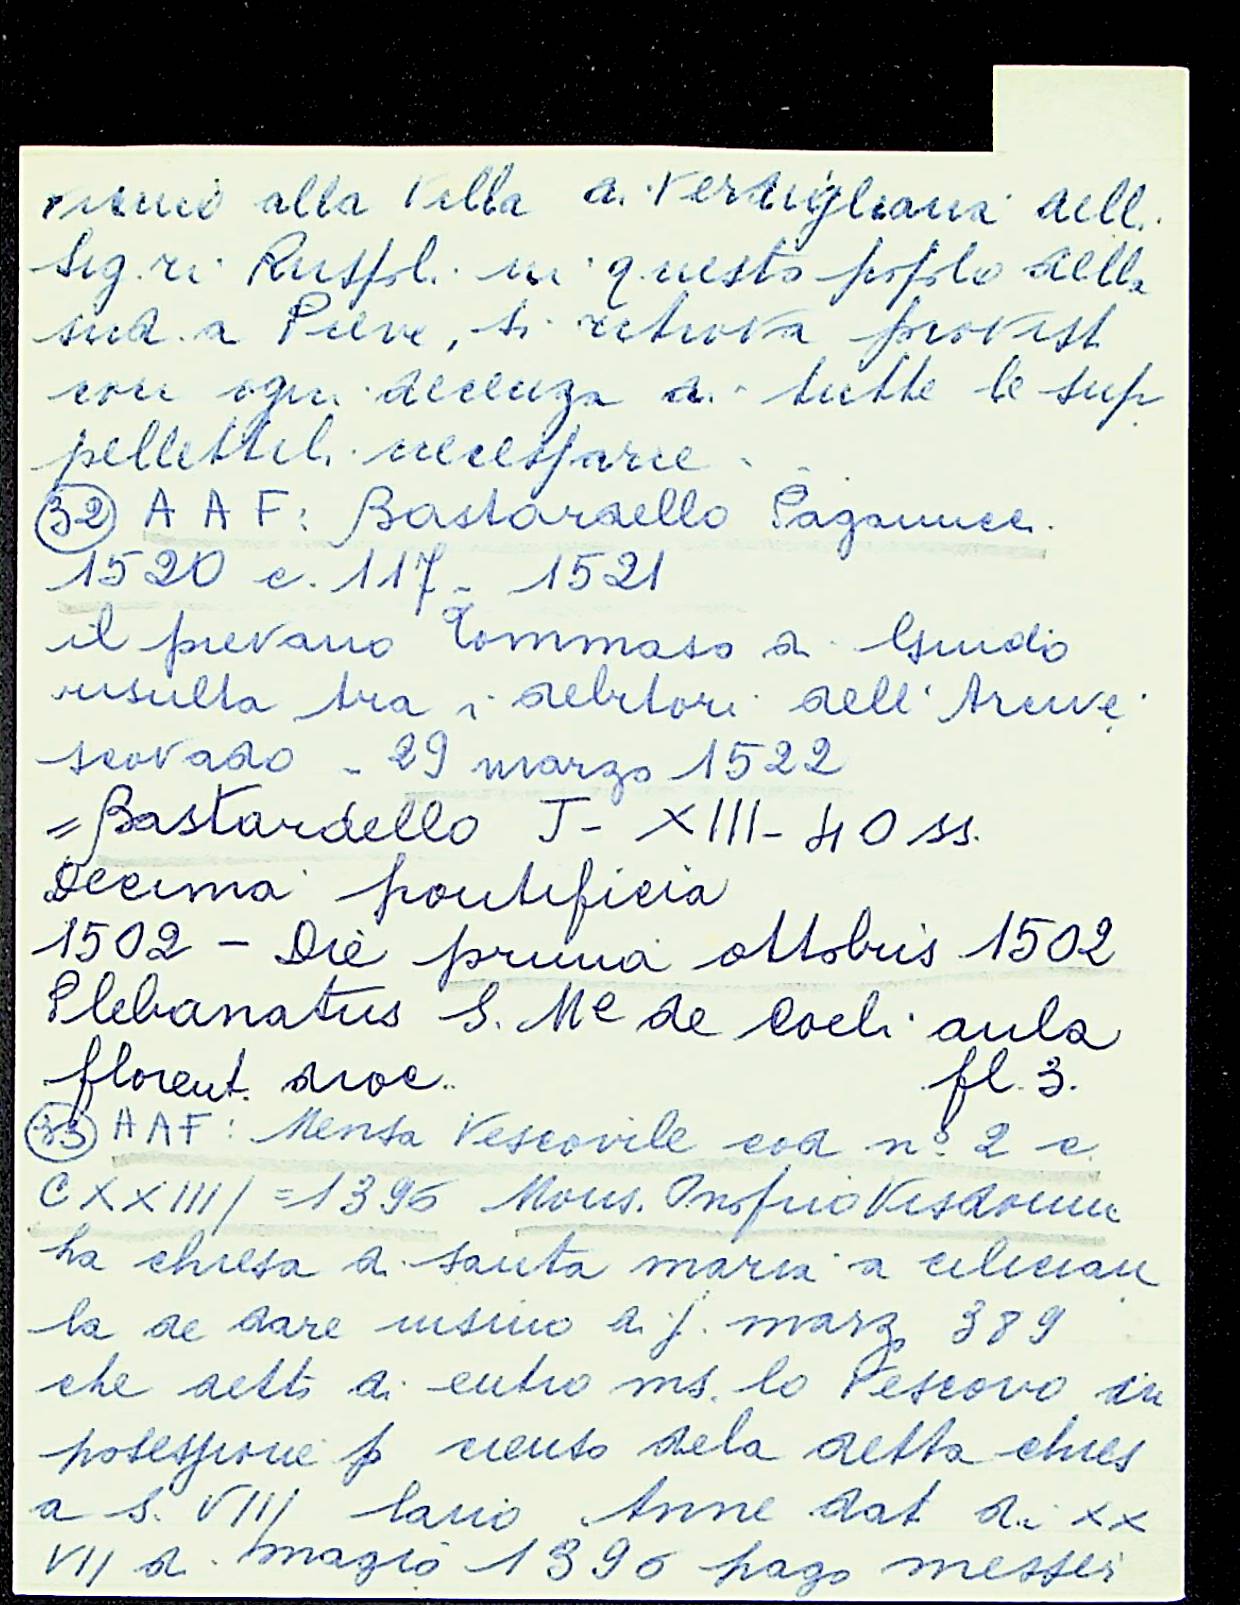 alla Villa di Vertigliana dell.
Sig.ri Ruspoli in questo popolo della
sud.a Pieve, si ritrova provist
con ogni decenza di tutte le sup
pellettili necessarie.
32 A A F: Bastardello Paganucci.
1520 c. 117 - 1521
il pievano Tommaso di Guido
risulta tra i debitori dell'Arcive
scovado - 29 marzo 1522
= Bastardello J - XIII - 40 ss.
Decima pontificia
1502 - Die prima ottobris 1502
Plebanatus S. Me de Coeli aula
florent. dioc. fl. 3.
33 AAF: Mensa Vescovile cod n° 2 c.
CXXIIII = 1396 Mons. Onofrio Visdomin
ha chiesa di santa maria a cilician
la de dare insino di j. marzo 389
che detti di entro ms. lo Vescovo in
posessione p censo dela detta chies
a s. VIII lano Anne dat di xx
VII di magio 1396 pago messer